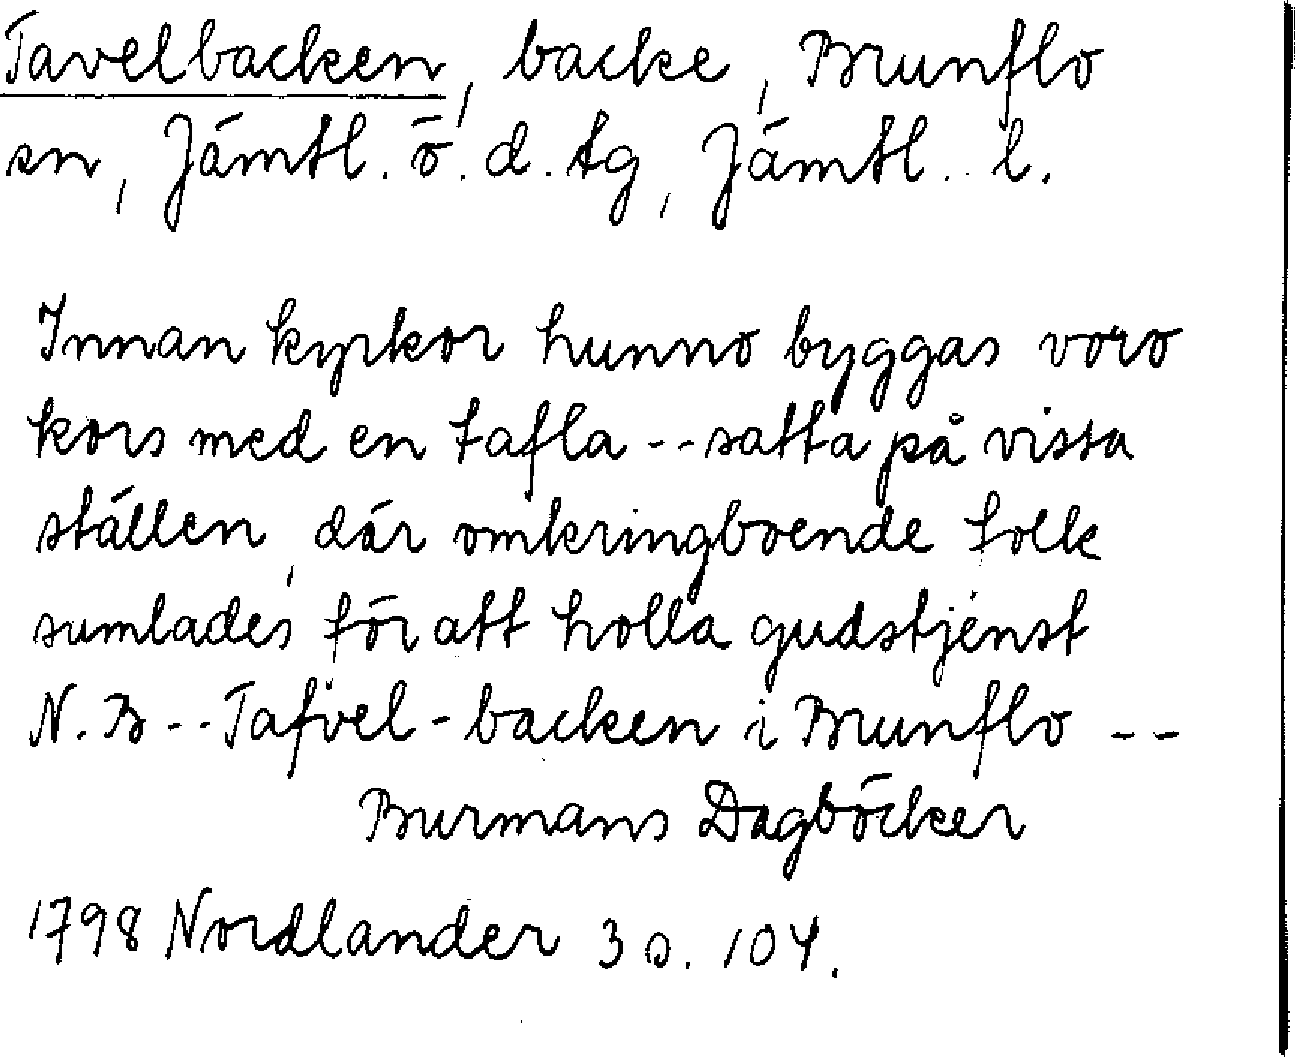 Tavelbacken, backe, Brunflo
sn, Jämtl. ö. d. tg, Jämtl. l.
Innan kyrkor hunno byggas voro
kors med en tafla -- satta på vissa
ställen, där omkringboende folk
sumlades för att holla gudstjenst
N. B -- Tafvel-backen i Brunflo --
Burmans Dagböcker
1798 Nordlander 3 s. 104.